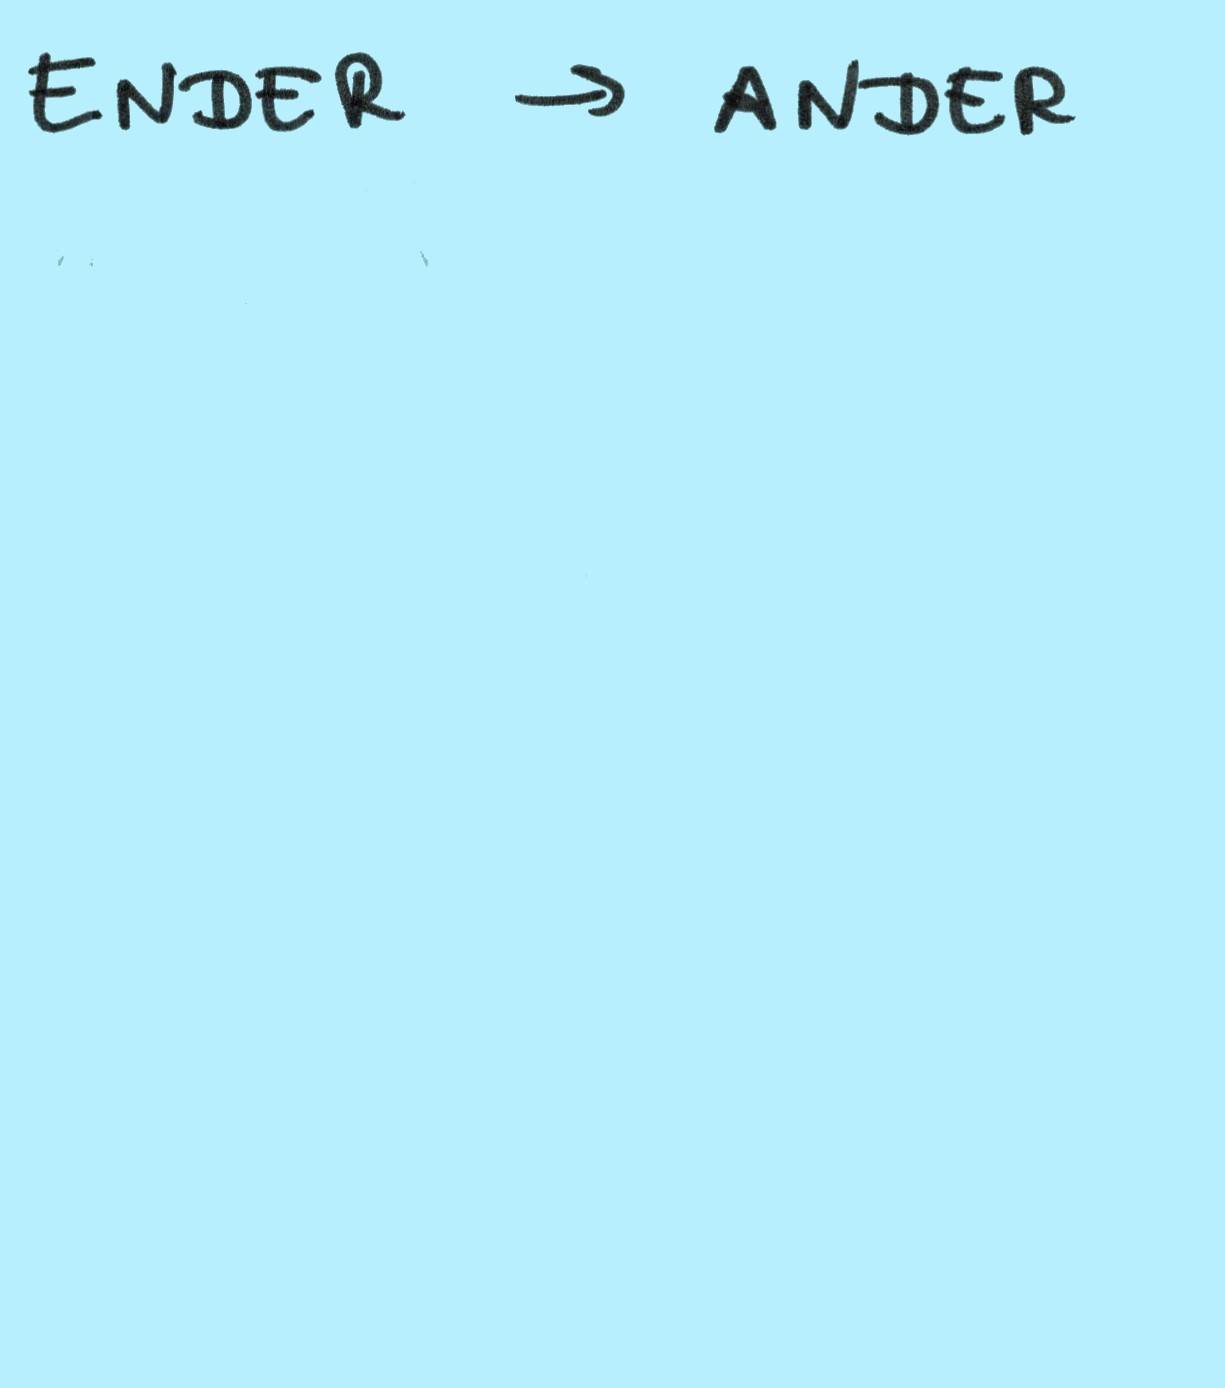 ENDER → ANDER